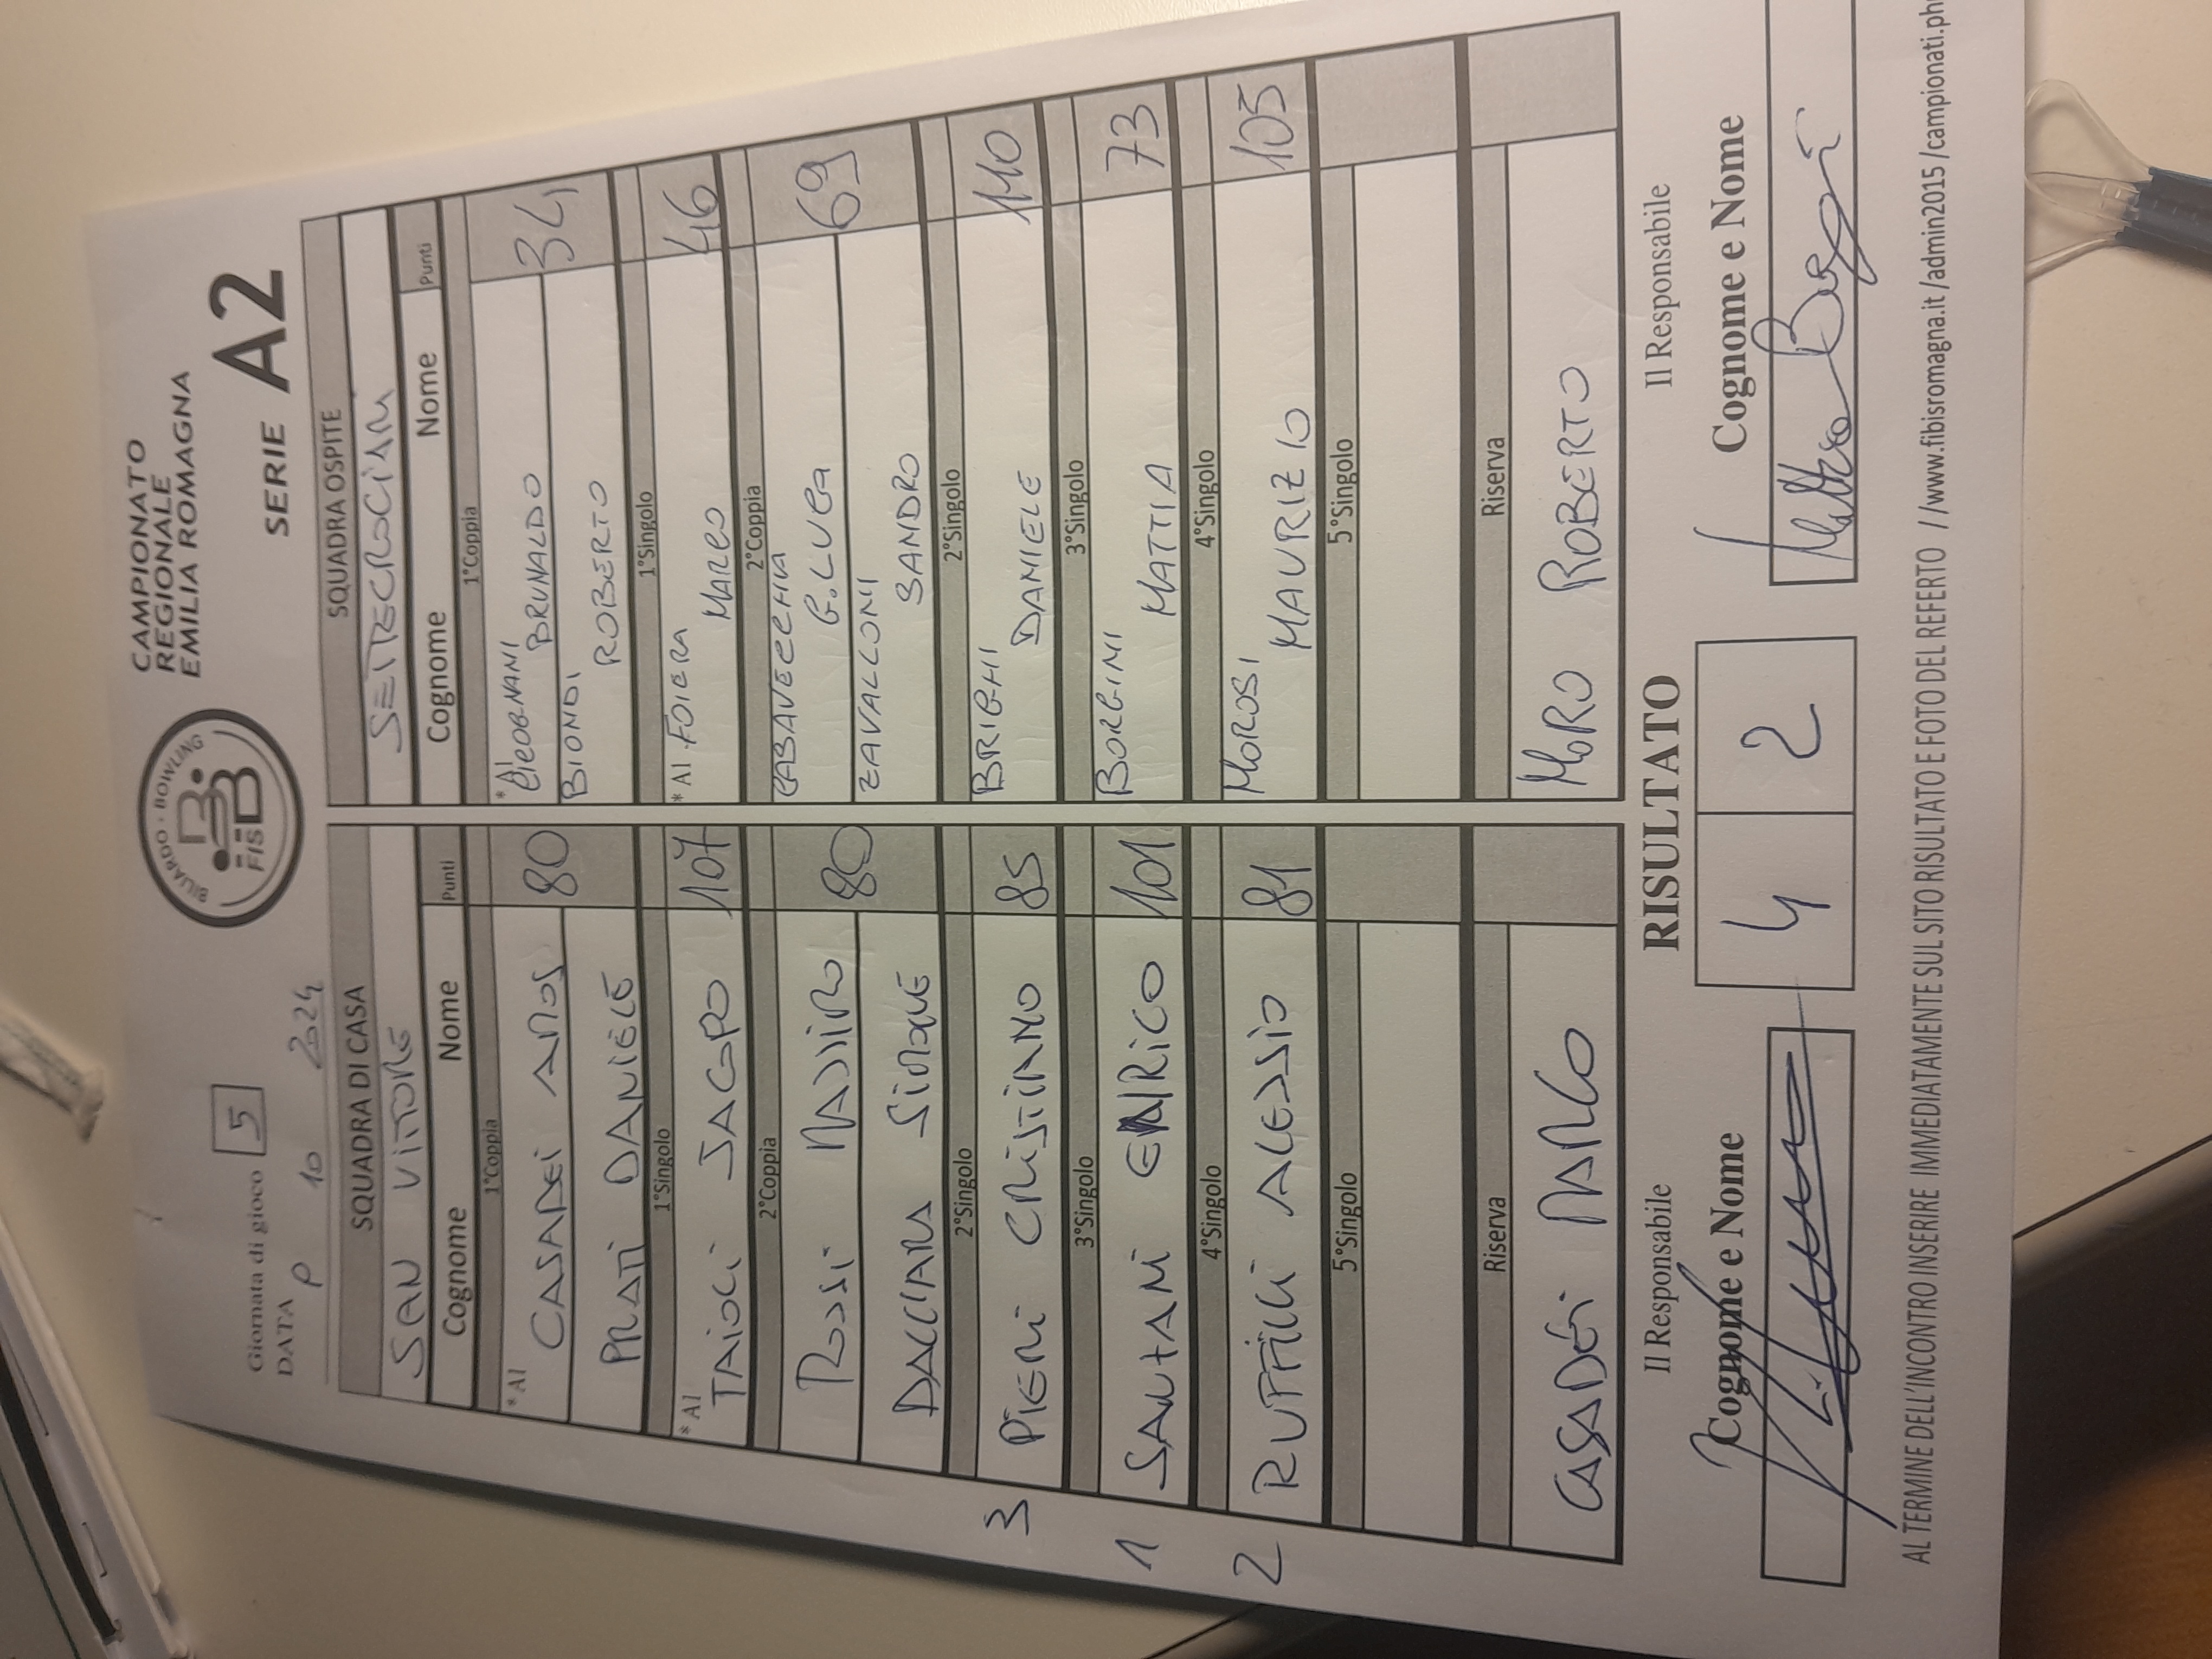 Giornata di gioco 5
DATA 10 2024
BILIARDO · BOWLING
FISBB
CAMPIONATO
REGIONALE
EMILIA ROMAGNA
SERIE A2
SQUADRA DI CASA
SAN VITTORE
Cognome Nome Punti
1°Coppia
*A1
CASADEI AMOS 80
PRATI DANIELE
1°Singolo
*A1
TAIOLI JAGOR 107
2°Coppia
ROSSI MASSIMO 80
DALLIARA SIMONE
2°Singolo
3 PIERI CRISTIANO 85
3°Singolo
1 SANTANI ENRICO 101
4°Singolo
2 RUFFILLI ALESSIO 81
5°Singolo
Riserva
CASADEI MARCO
SQUADRA OSPITE
SETTECROCIARI
Cognome Nome Punti
1°Coppia
*A1
CICOGNANI BRUNALDO 34
BIONDI ROBERTO
1°Singolo
*A1 FOIERA MARCO 46
2°Coppia
CASAVECCHIA G.LUCA 69
ZAVALLONI SANDRO
2°Singolo
BRIGHI DANIELE 110
3°Singolo
BORGINI MATTIA 73
4°Singolo
MOROSI MAURIZIO 105
5°Singolo
Riserva
MORO ROBERTO
Il Responsabile
Cognome e Nome
RISULTATO
4 2
Il Responsabile
Cognome e Nome
AL TERMINE DELL'INCONTRO INSERIRE IMMEDIATAMENTE SUL SITO RISULTATO E FOTO DEL REFERTO //www.fibisromagna.it /admin2015 /campionati.ph